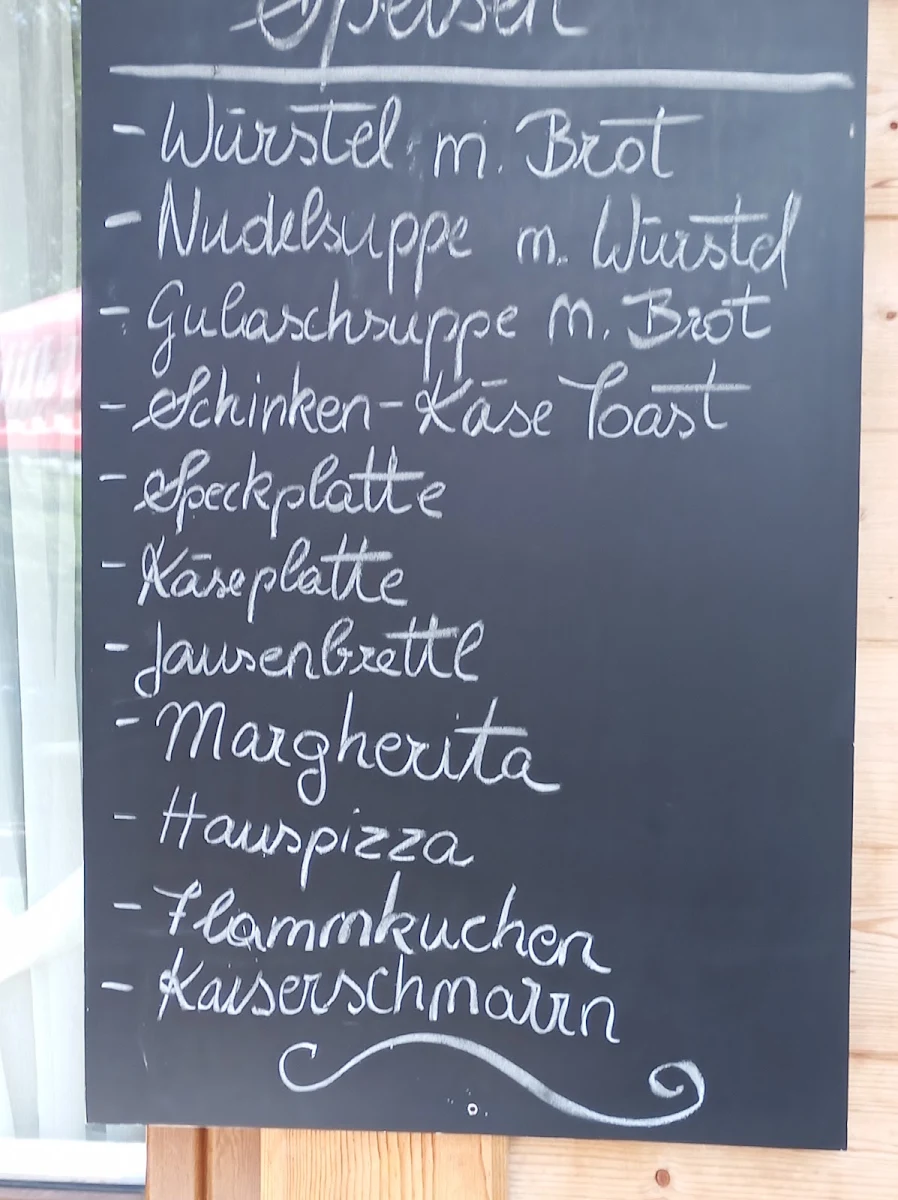 Speisen
- Würstel m. Brot
- Nudelsuppe m. Würstel
- Gulaschsuppe m. Brot
- Schinken-Käse Toast
- Speckplatte
- Käseplatte
- Jausenbrettl
- Margherita
- Hauspizza
- Flammkuchen
- Kaiserschmarrn